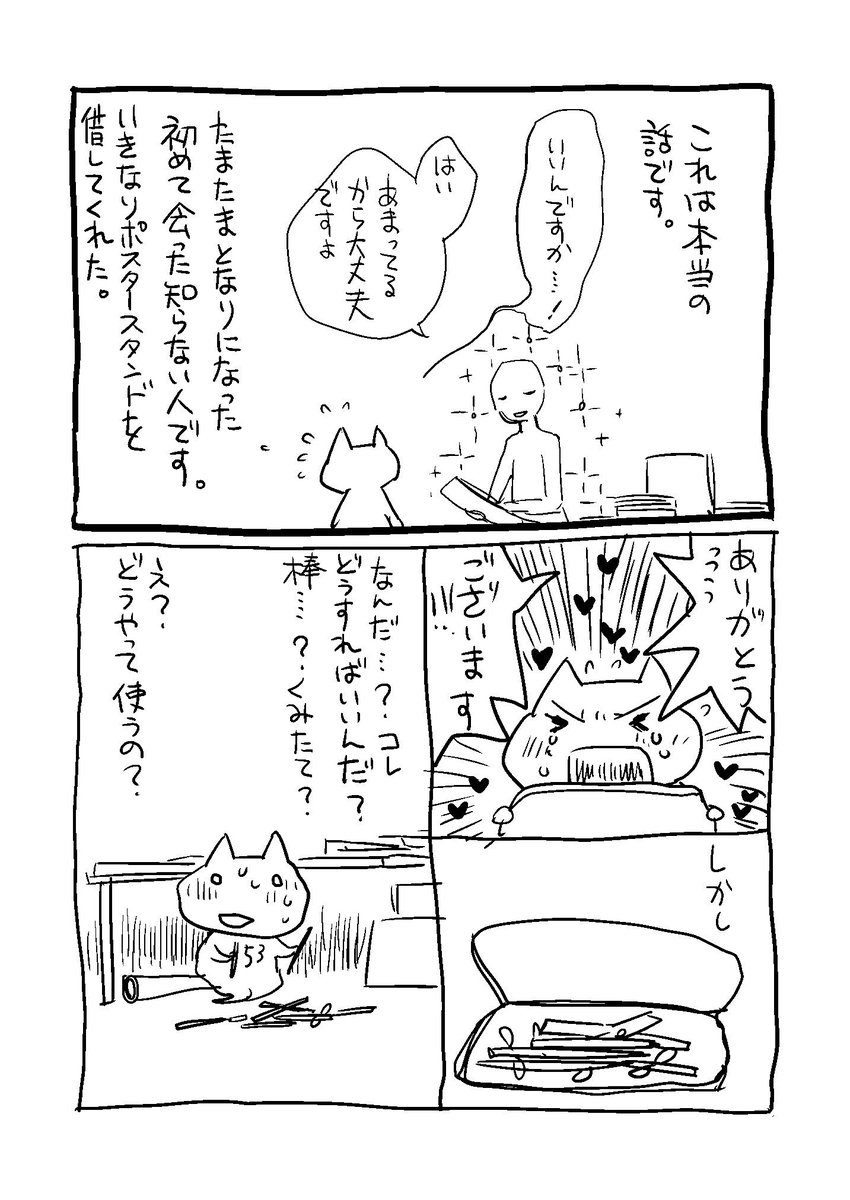 これは本当の
話です。
いいんですか…！
はい
あまってる
から大丈夫
ですよ
たまたまとなりになった
初めて会った知らない人です。
いきなりポスタースタンドを
借してくれた。
ありがとう
っっっ
ございます
!!!
しかし
なんだ…？コレ
どうすればいいんだ？
棒…？くみたて？
え？
どうやって使うの？
53